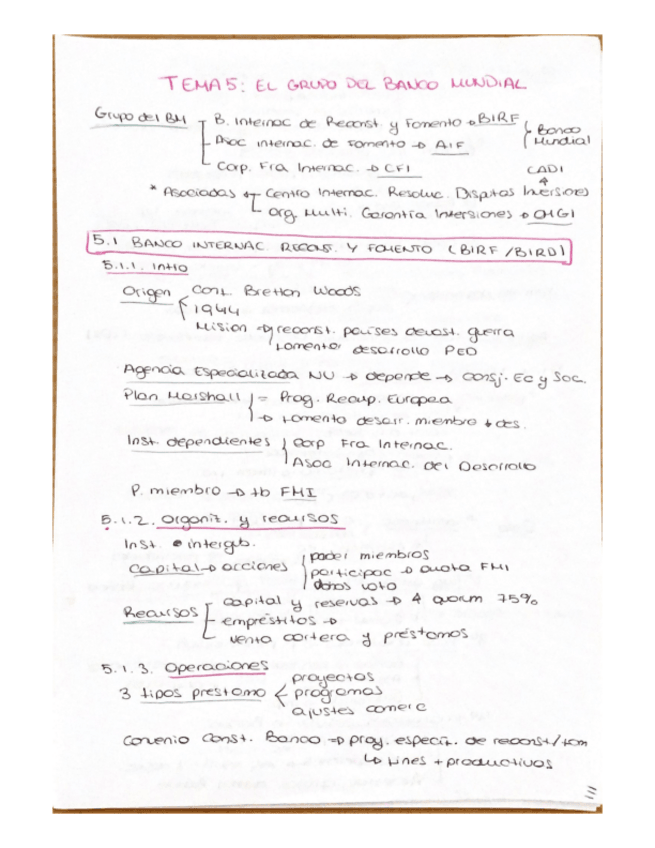 TEMA 5: EL GRUPO DEL BANCO MUNDIAL
Grupo del BM B. Internac de Reconst. y Fomento → BIRF
Asoc internac. de Fomento → AIF Banco Mundial
Corp. Fra Internac. → CFI CADI
* Asociadas Centro Internac. Resoluc. Disputas Inversiones
Org Multi. Garantía Inversiones → OMGI
5.1 BANCO INTERNAC. RECONS. Y FOMENTO (BIRF/BIRD)
5.1.1. Intro
Origen Conf. Bretton Woods
1944
Misión → reconst. países devast. guerra
Fomentar desarrollo PED
Agencia Especializada NU → depende → Consj. Ec y Soc.
Plan Marshall = Prog. Recup. Europea
→ Fomento desarr. miembro + des.
Inst. dependientes Corp Fra Internac.
Asoc Internac. del Desarrollo
P. miembro → tb FMI
5.1.2. Organiz. y recursos
Inst. intergub.
Capital → acciones poder miembros
participac → cuota FMI
dchos voto
Recursos capital y reservas → 4 quorum 75%
empréstitos →
venta cartera y préstamos
5.1.3. Operaciones
3 tipos préstamo proyectos
programas
ajustes comerc
Convenio Const. Banco → proy. específ. de reconst/fom
↳ Fines + productivos